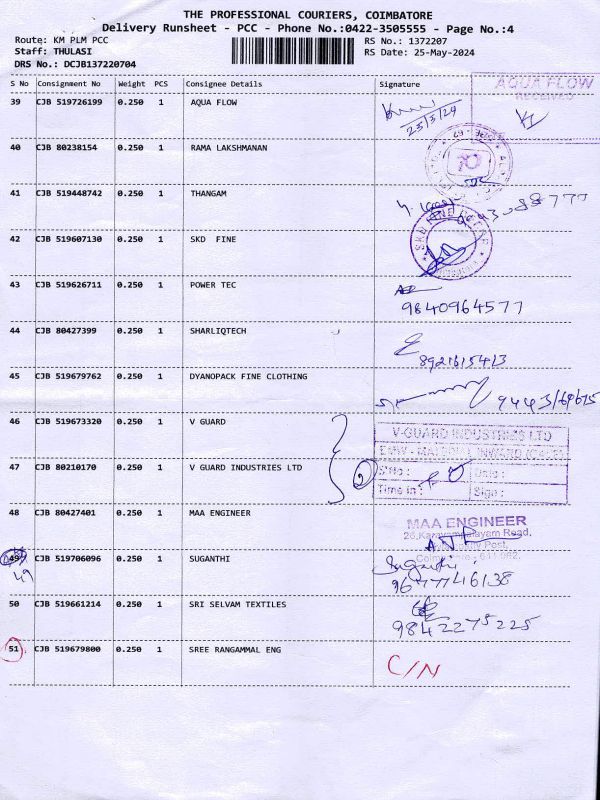 THE PROFESSIONAL COURIERS, COIMBATORE
Delivery Runsheet - PCC - Phone No.:0422-3505555 - Page No.:4
Route: KM PLM PCC RS No.: 1372207
Staff: THULASI RS Date: 25-May-2024
DRS No.: DCJB137220704
S No Consignment No Weight PCS Consignee Details Signature
AQUA FLOW
RECEIVED
39 CJB 519726199 0.250 1 AQUA FLOW
25/5/24
40 CJB 80238154 0.250 1 RAMA LAKSHMANAN
41 CJB 519448742 0.250 1 THANGAM
42 CJB 519607130 0.250 1 SKD FINE
43 CJB 519626711 0.250 1 POWER TEC
9840964577
44 CJB 80427399 0.250 1 SHARLIQTECH
8921615413
45 CJB 519679762 0.250 1 DYANOPACK FINE CLOTHING
46 CJB 519673320 0.250 1 V GUARD
V-GUARD INDUSTRIES LTD
47 CJB 80210170 0.250 1 V GUARD INDUSTRIES LTD
2
S.No : Date :
Time in : Sign :
48 CJB 80427401 0.250 1 MAA ENGINEER
MAA ENGINEER
49 CJB 519706096 0.250 1 SUGANTHI
49
Suganthi
50 CJB 519661214 0.250 1 SRI SELVAM TEXTILES
9842275225
51 CJB 519679800 0.250 1 SREE RANGAMMAL ENG
C/N